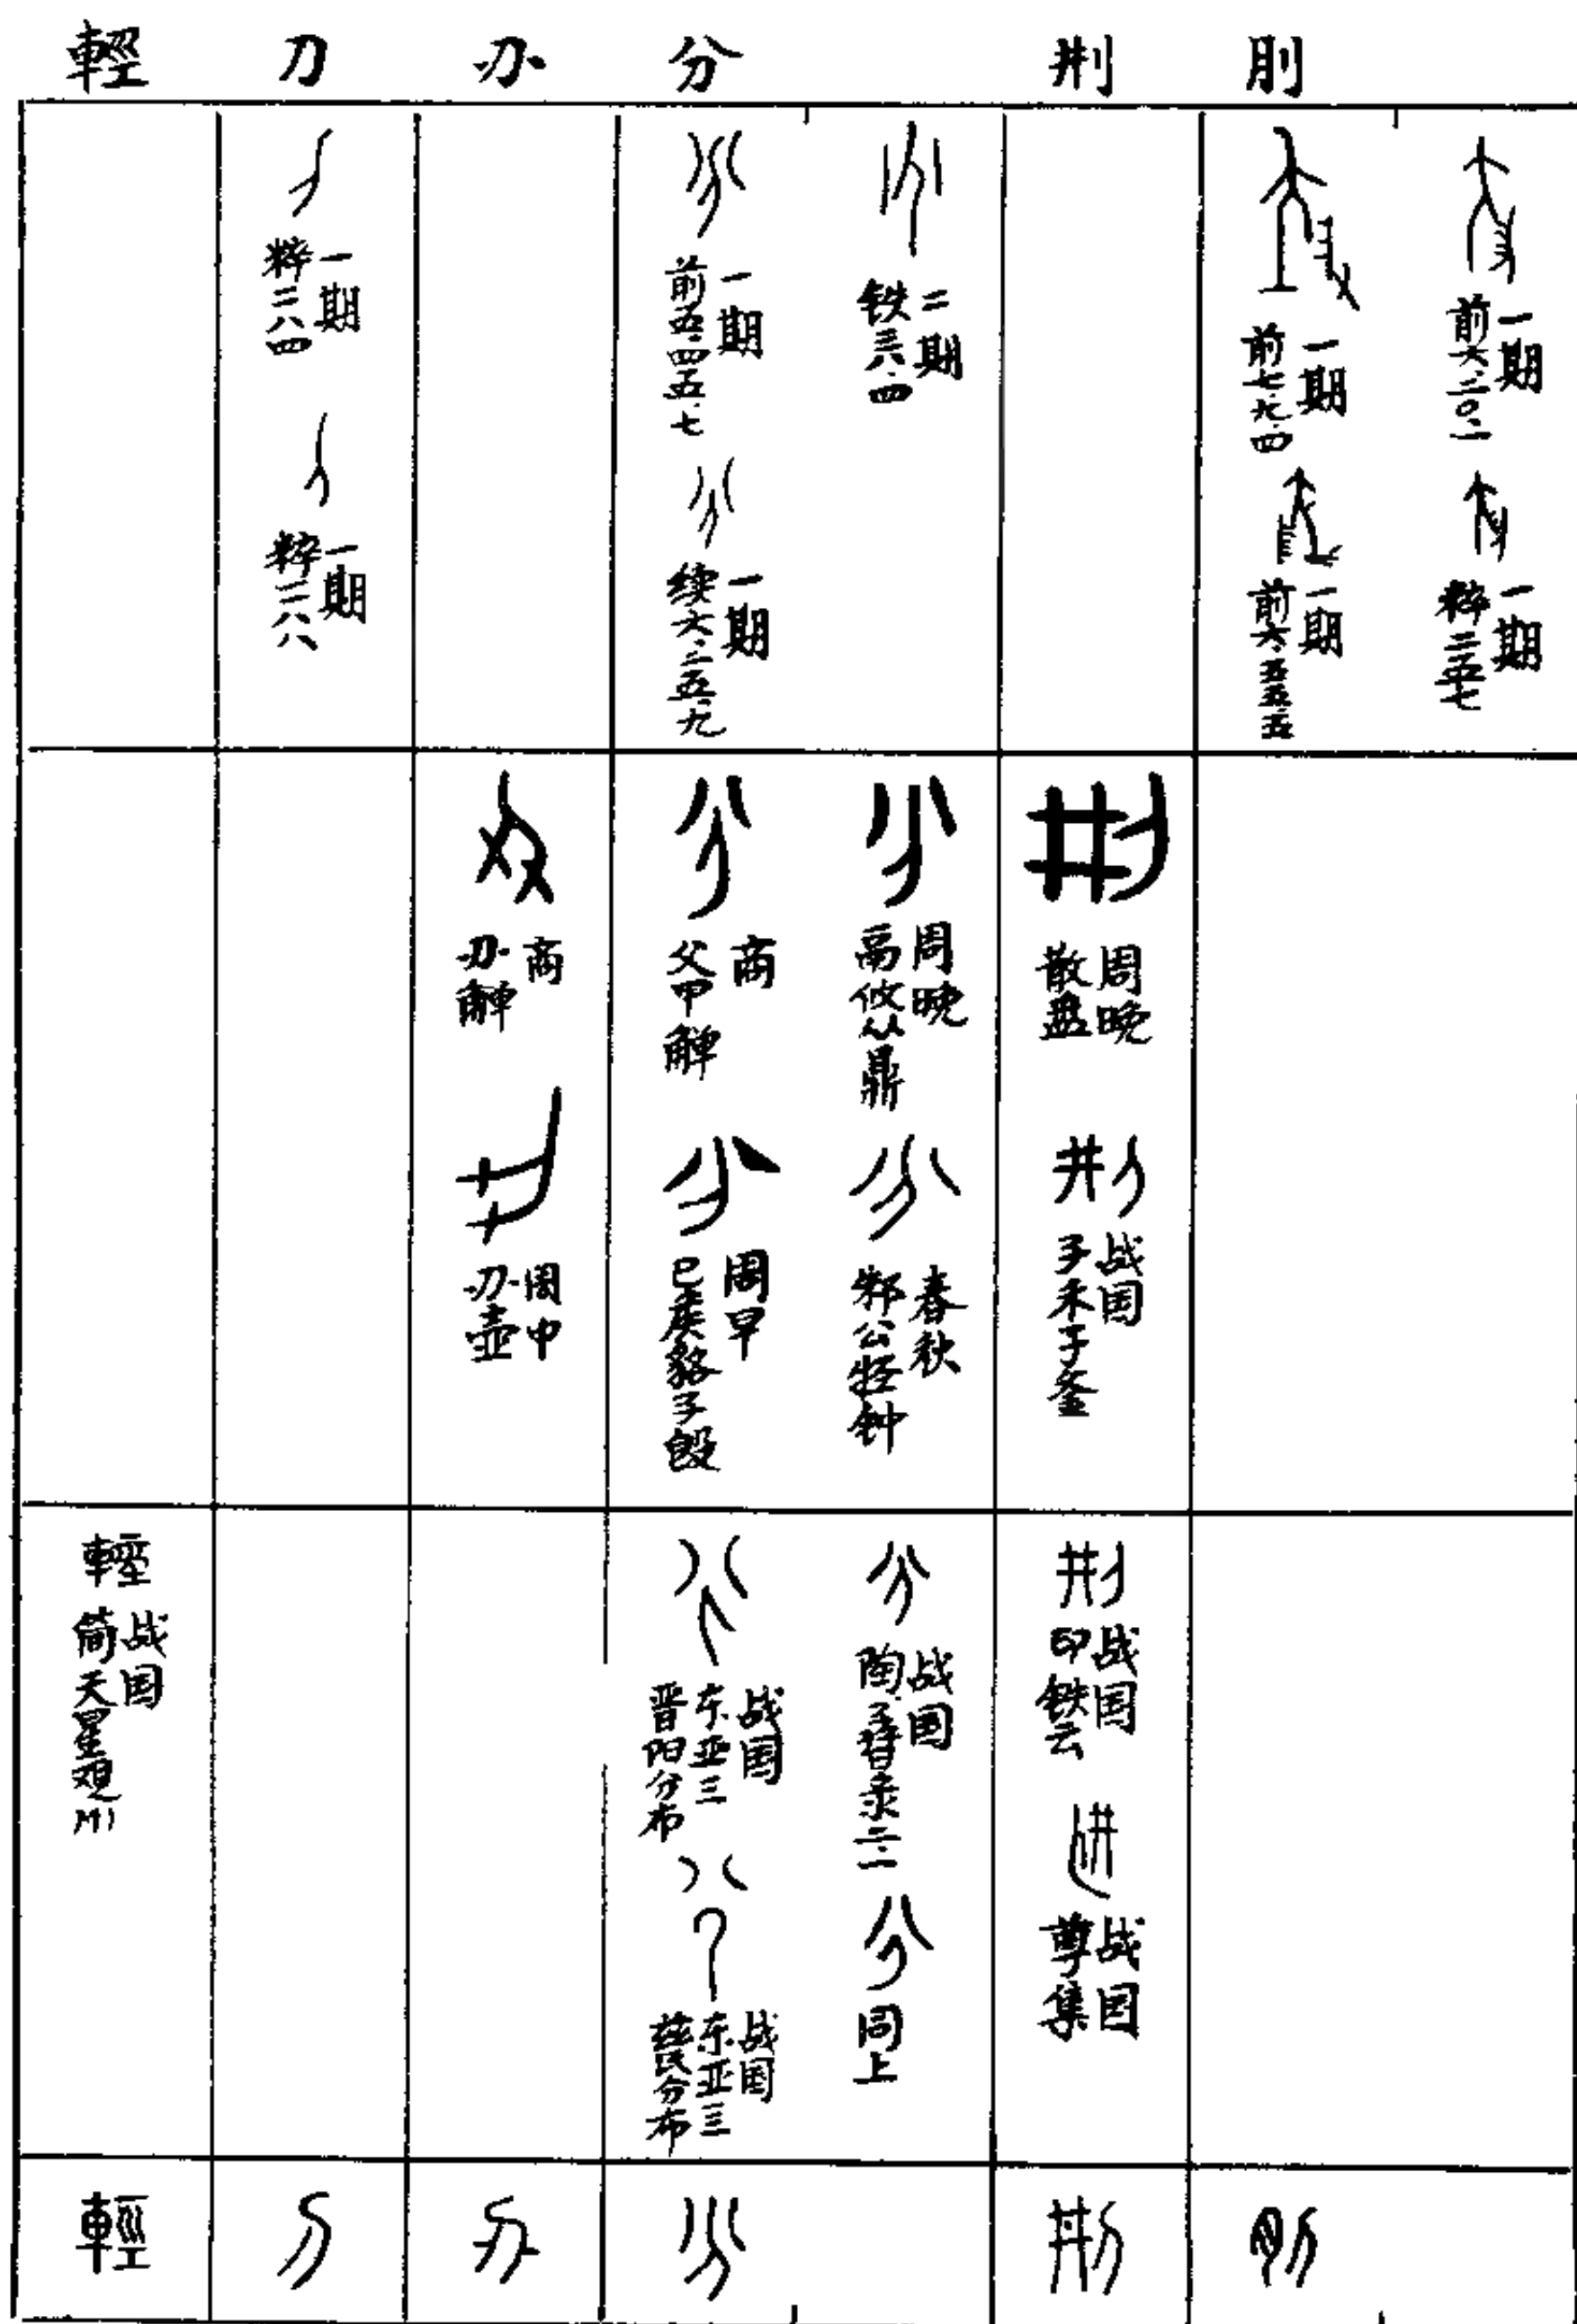 輕 刀 办 分 刑 刖
一期 粹三八四
一期 粹三八八
一期 前五·四五·七
一期 续六·二五·九
二期 铁三八·四
一期 前七·九·四
一期 前六·五五·五
一期 前六·三〇·一
一期 粹二五七
商 办觯
周中 办壶
商 父甲觯
周早 己侯貉子𣪘
周晚 鬲攸从鼎
春秋 邾公牼钟
周晚 散盘
战国 子禾子釜
輕 战国 简天星观
战国 东亚三 晋阳分布
战国 东亚三 兹氏分布
战国 陶
同上
战国 印铁云
战国 尊集